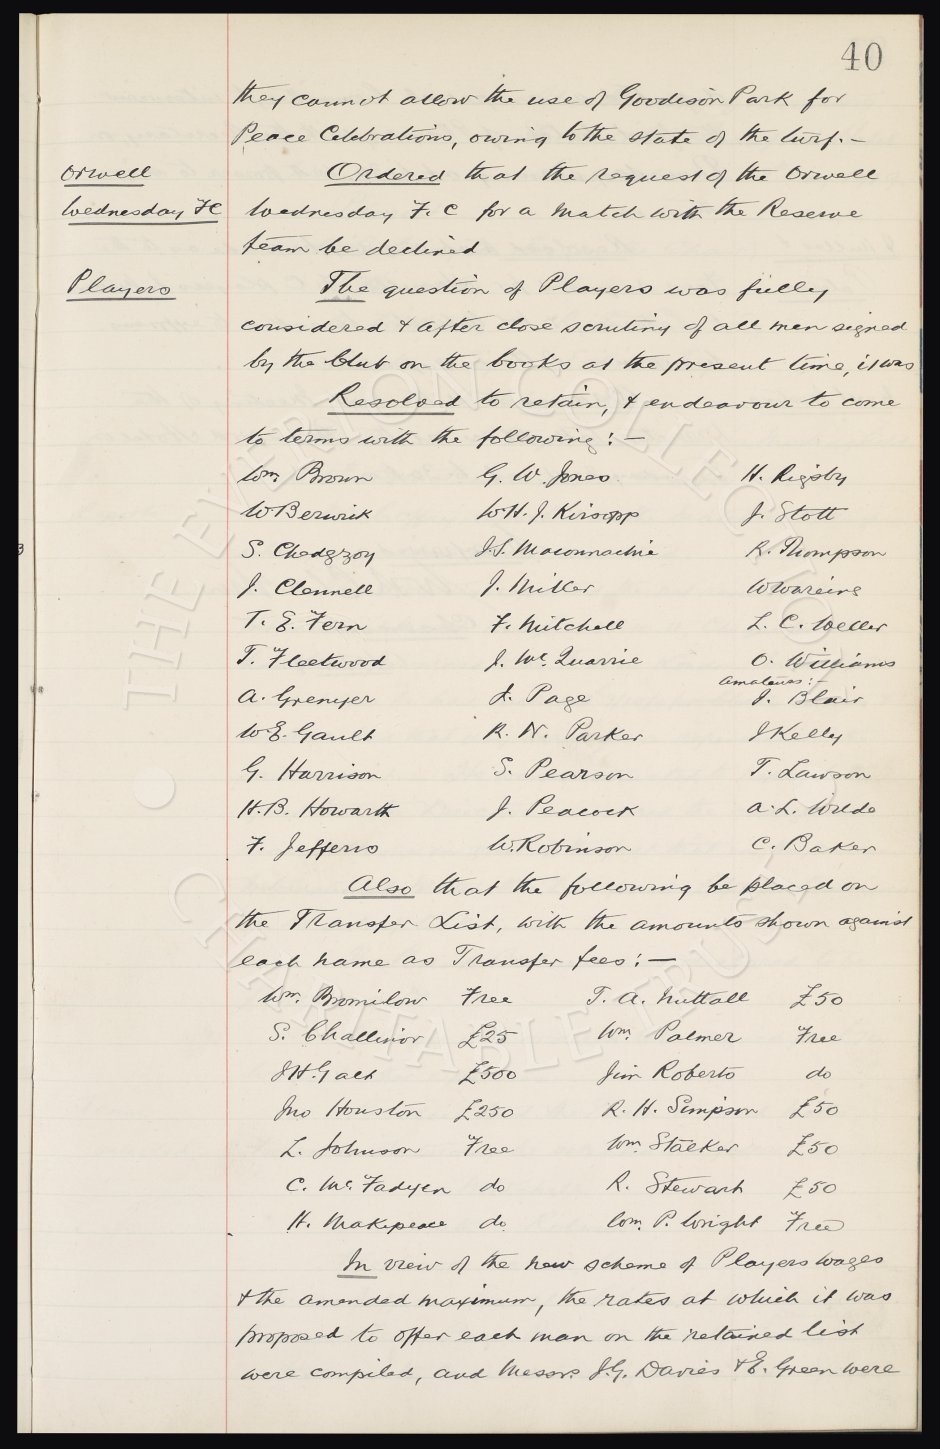 40
they cannot allow the use of Goodison Park for
Peace Celebrations, owing to the state of the turf. –
Orwell
Wednesday FC
Ordered that the request of the Orwell
Wednesday F. C for a match with the Reserve
team be declined
Players
The question of Players was fully
considered & after close scrutiny of all men signed
by the Club on the books at the present time, it was
Resolved to retain, & endeavour to come
to terms with the following : –
Wm. Brown G. W. Jones H. Rigsby
W Berwick W. H. J. Kirsopp J. Stott
S. Chedgzoy J. S. Maconnachie R. Thompson
J. Clennell J. Miller W Wareing
T. E. Fern F. Mitchell L. C. Weller
T. Fleetwood J. Mc. Quarrie O. Williams
Amateurs : –
A. Grenyer J. Page J. Blair
W E. Gault R. N. Parker J Kelly
G. Harrison S. Pearson T. Lawson
H. B. Howarth J. Peacock A. L. Wilde
F. Jefferis W. Robinson C. Baker
Also that the following be placed on
the Transfer List, with the amounts shown against
each name as Transfer fees : –
Wm. Bromilow Free T. A. Nuttall £50
S. Challinor £25 Wm. Palmer Free
J H. Galt £500 Jim Roberts do
Jno Houston £250 R. H. Simpson £50
L. Johnson Free Wm. Stalker £50
C. Mc. Fadyen do R. Stewart £50
H. Makepeace do Wm. P. Wright Free
In view of the new scheme of Players wages
& the amended maximum, the rates at which it was
proposed to offer each man on the retained list
were compiled, and Messrs. J. G. Davies & E. Green were
© THE EVERTON COLLECTION
CHARITABLE TRUST